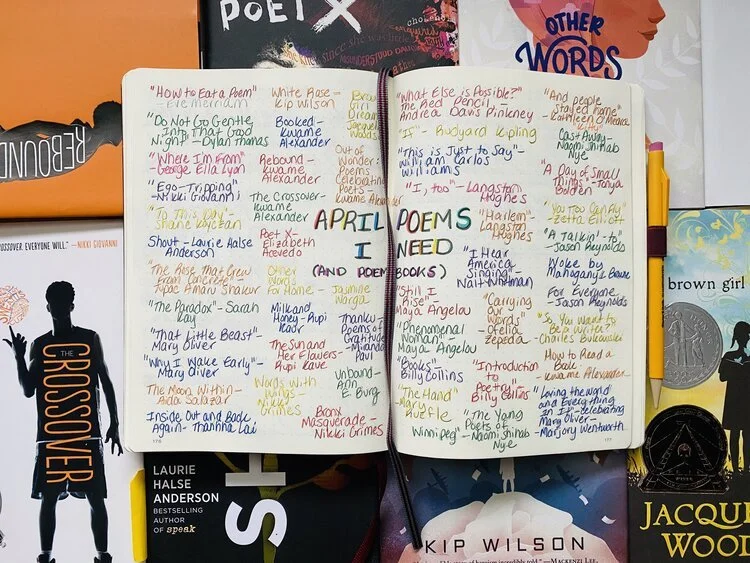 POET X
OTHER
WORDS
REBOUND
CROSSOVER. EVERYONE WILL." — NIKKI GIOVANNI
THE
CROSSOVER
"How to Eat a Poem"
- Eve Merriam
"Do Not Go Gentle
Into That Good
Night" - Dylan Thomas
"Where I'm From" -
George Ella Lyon
"Ego-Tripping"
- Nikki Giovanni
"To This Day" -
Shane Koyczan
Shout - Laurie Halse
Anderson
"The Rose that Grew
From Concrete" -
Tupac Amaru Shakur
"The Paradox" - Sarah
Kay
"That Little Beast"
Mary Oliver
"Why I Wake Early" -
Mary Oliver
The Moon Within -
Aida Salazar
Inside Out and Back
Again - Thanhha Lai
176
White Rose -
Kip Wilson
Booked -
Kwame
Alexander
Rebound -
Kwame
Alexander
The Crossover -
Kwame
Alexander
Poet X -
Elizabeth
Acevedo
Other
Words
For Home - Jasmine
Warga
Milk and
Honey - Rupi
Kaur
The Sun and
Her Flowers - Rupi Kaur
Words with
Wings - Nikki
Grimes
Bronx
Masquerade -
Nikki Grimes
Brown
Girl
Dreaming
Jacqueline
Woods
Out of
Wonder -
Poems
Celebrating
Poets -
Kwame Alexander
Thanku
Poems of
Gratitude
- Miranda
Paul
Unbound -
Ann
E. Burg
APRIL POEMS
I NEED
(AND POEM BOOKS)
"What Else is Possible?"
The Red Pencil -
Andrea Davis Pinkney
"If" - Rudyard Kipling
"This is Just to Say" -
William Carlos
Williams
"I, too" - Langston
Hughes
"Harlem" -
Langston
Hughes
"I Hear
America
Singing" -
Walt Whitman
"Still I
Rise" -
Maya Angelou
"Phenomenal
Woman" -
Maya Angelou
"Books" -
Billy Collins
"The Hand"
Mary
Ruefle
"Carrying
Our
Words" -
Ofelia
Zepeda
"Introduction
to
Poetry" - Billy Collins
"The Yang
Poets of
Winnipeg" - Naomi Shihab
Nye
"And people
stayed home"
- Kathleen O'Meara
"Kitty"
Cast Away -
Naomi Shihab
Nye
"A Day of Small
Things"
- Tonya
Bolden
"You Too Can Fly"
- Zetta Elliott
"A Talkin'-to"
- Jason Reynolds
Woke by
Mahogany L Browne
For Everyone
- Jason Reynolds
"So You Want to
Be a Writer?" -
Charles Bukowski
How to Read a
Book -
Kwame Alexander
"Loving the World
and Everything
in It" - Celebrating
Mary Oliver -
Marjory Wentworth
177
brown girl
LAURIE
HALSE
ANDERSON
BESTSELLING
AUTHOR
OF speak
SH
KIP WILSON
MACKENZI LEE
JACQUE
WOOD